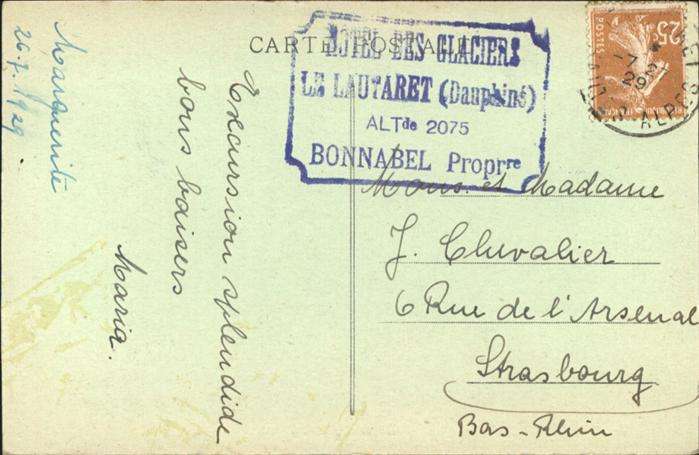 Marguerite
26.7.1929
Excursion splendide
bons baisers
Maria.
CARTE POSTALE
HOTEL DES GLACIERS
LE LAUTARET (Dauphiné)
ALTde 2075
BONNABEL Proprre
25c
POSTES
17
29
ALPES
Mons. et Madame
J. Chevalier
6 Rue de l'Arsenal
Strasbourg
Bas-Rhin